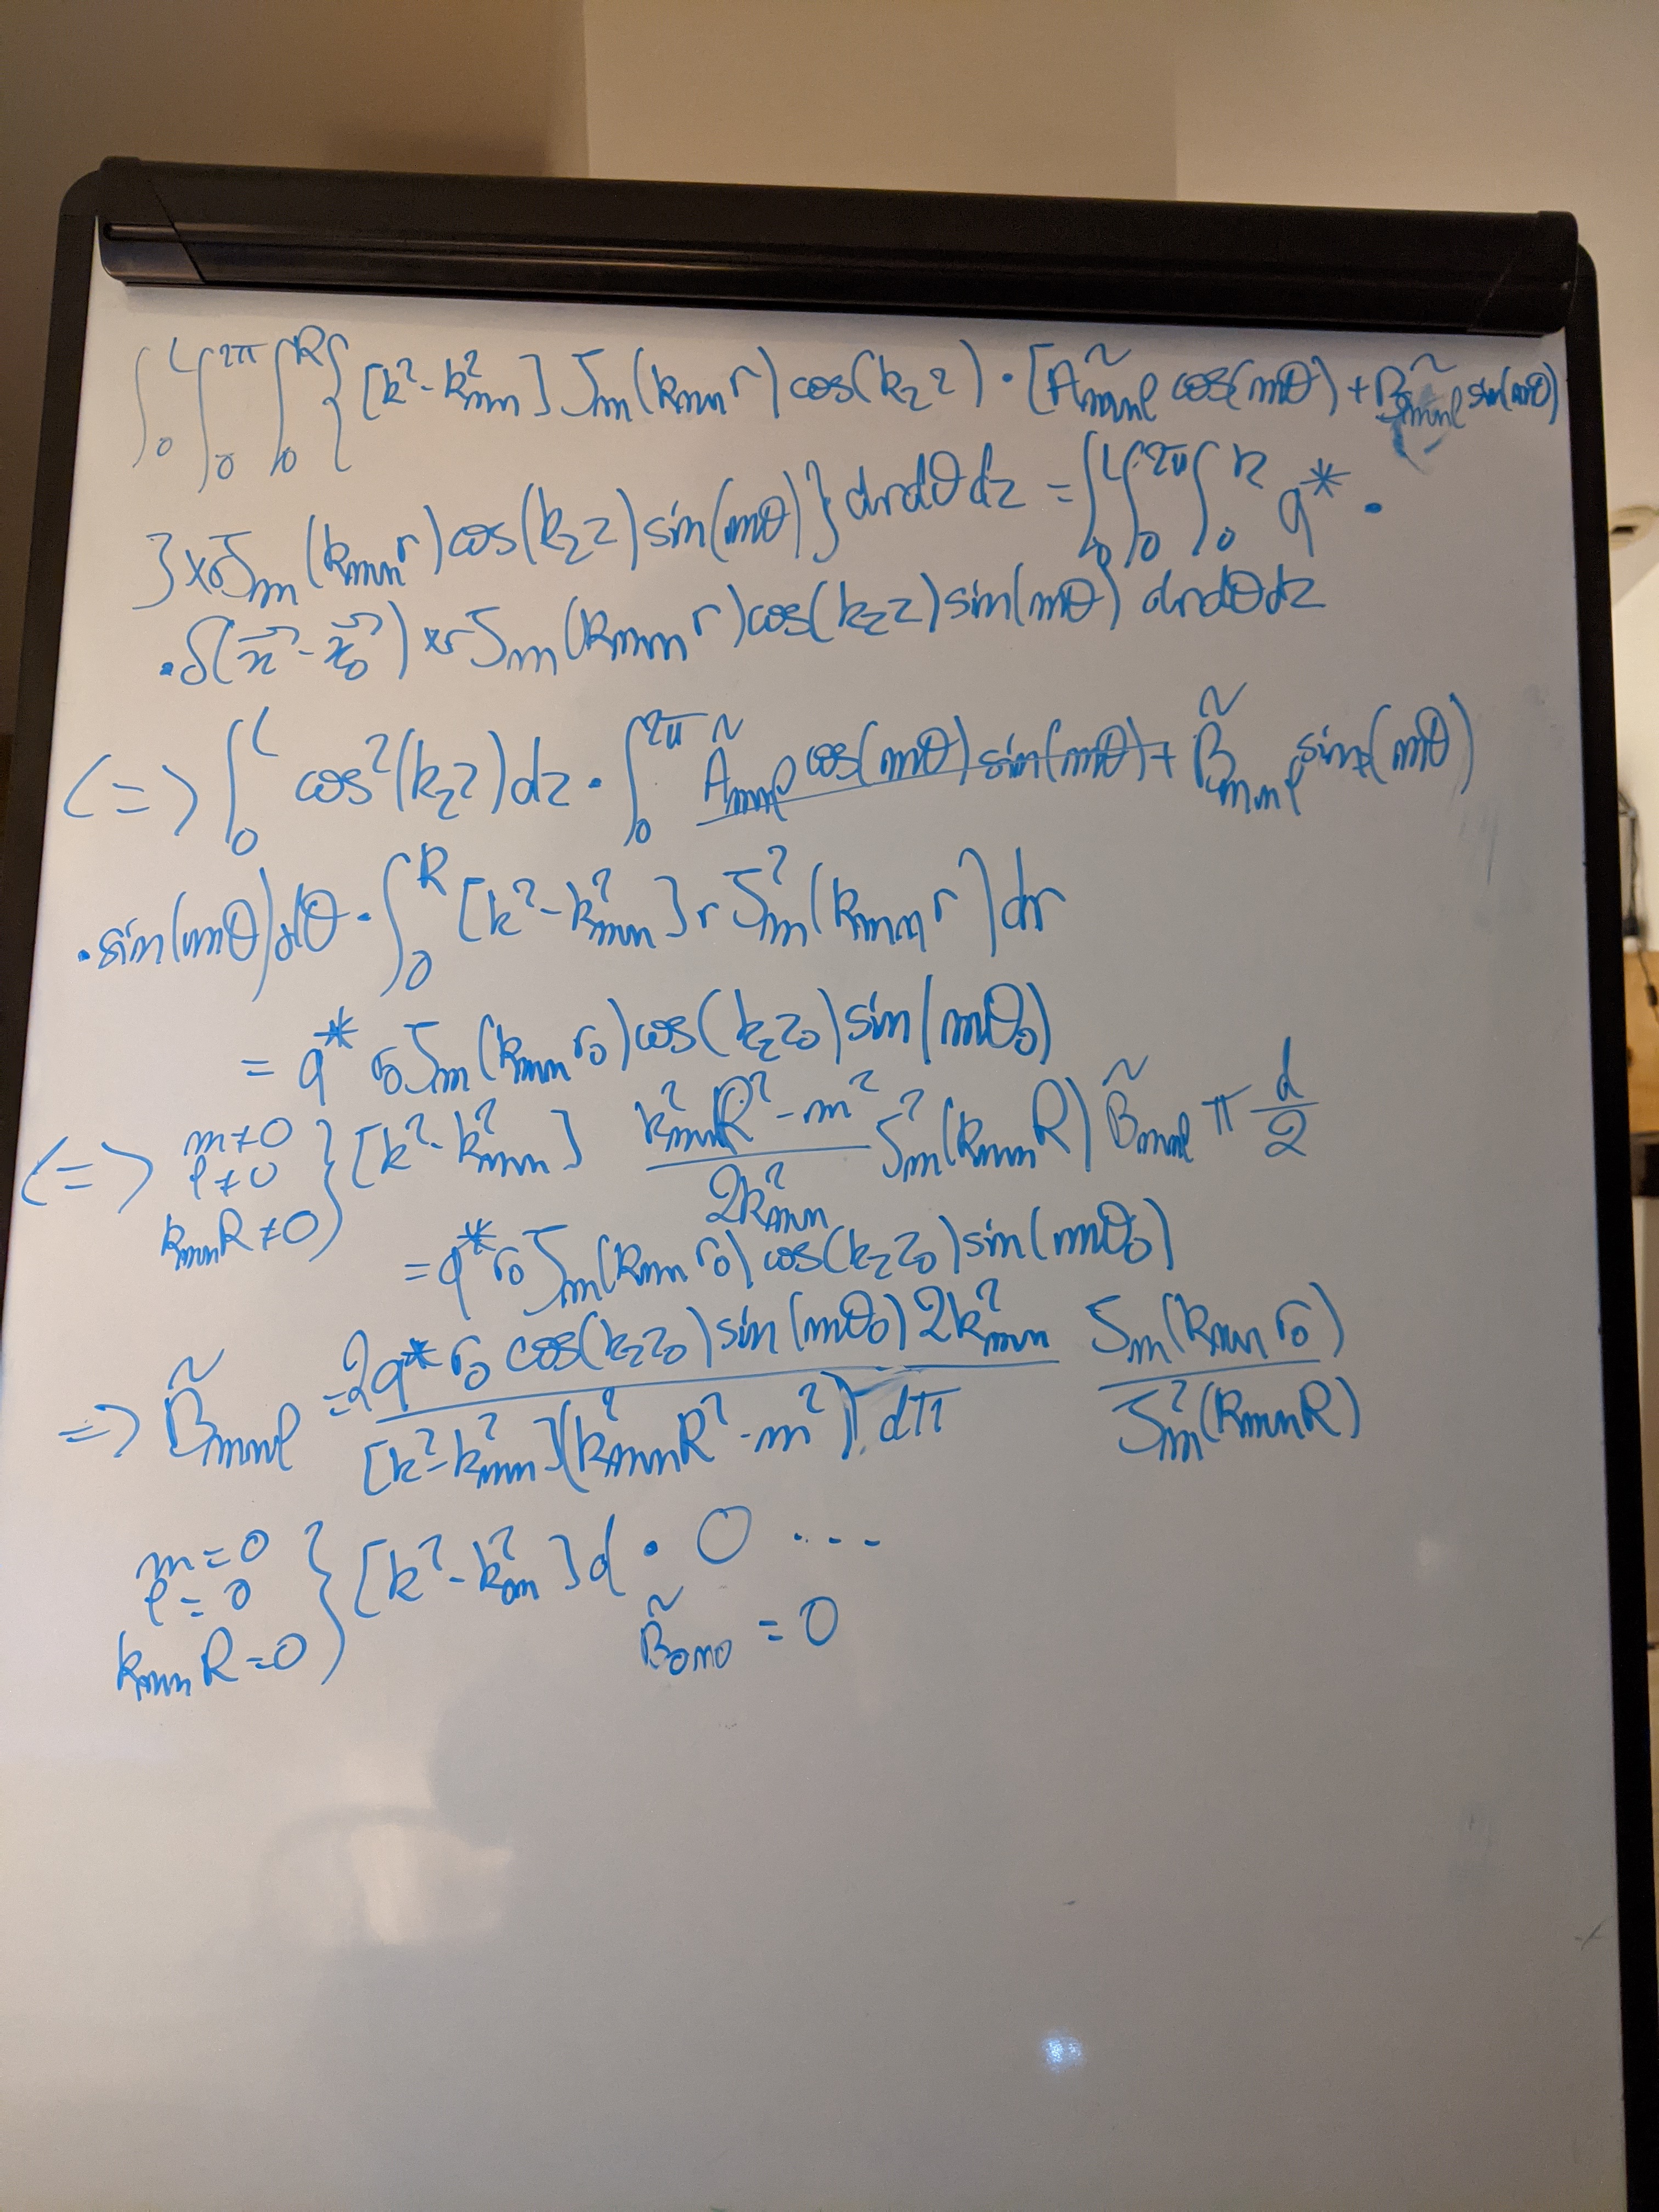 ∫₀ᴸ ∫₀^{2π} ∫₀ᴿ { [k² - k²ₘₙ] Jₘ(kₘₙ r) cos(k_z z) · [Ãₘₙₗ cos(mθ) + B̃ₘₙₗ sin(mθ)
] × r Jₘ(kₘₙ r) cos(k_z z) sin(mθ) } dr dθ dz = ∫₀ᴸ ∫₀^{2π} ∫₀ᴿ q* ·
· δ(x⃗ - x⃗₀) × r Jₘ(kₘₙ r) cos(k_z z) sin(mθ) dr dθ dz
<=> ∫₀ᴸ cos²(k_z z) dz · ∫₀^{2π} Ãₘₙₗ cos(mθ) sin(mθ) + B̃ₘₙₗ sin(mθ)
· sin(mθ) dθ · ∫₀ᴿ [k² - k²ₘₙ] r Jₘ²(kₘₙ r) dr
= q* r₀ Jₘ(kₘₙ r₀) cos(k_z z₀) sin(mθ₀)
<=> m≠0 l≠0 kₘₙR≠0 } [k² - k²ₘₙ] (k²ₘₙR² - m²)/(2k²ₘₙ) Jₘ²(kₘₙR) B̃ₘₙₗ π d/2
= q* r₀ Jₘ(kₘₙ r₀) cos(k_z z₀) sin(mθ₀)
=> B̃ₘₙₗ = (2q* r₀ cos(k_z z₀) sin(mθ₀) 2k²ₘₙ)/([k² - k²ₘₙ](k²ₘₙR² - m²) dπ) Jₘ(kₘₙ r₀)/Jₘ²(kₘₙR)
m=0 l=0 kₘₙR=0 } [k² - k²₀ₙ] d · 0 ....
B̃₀ₙ₀ = 0